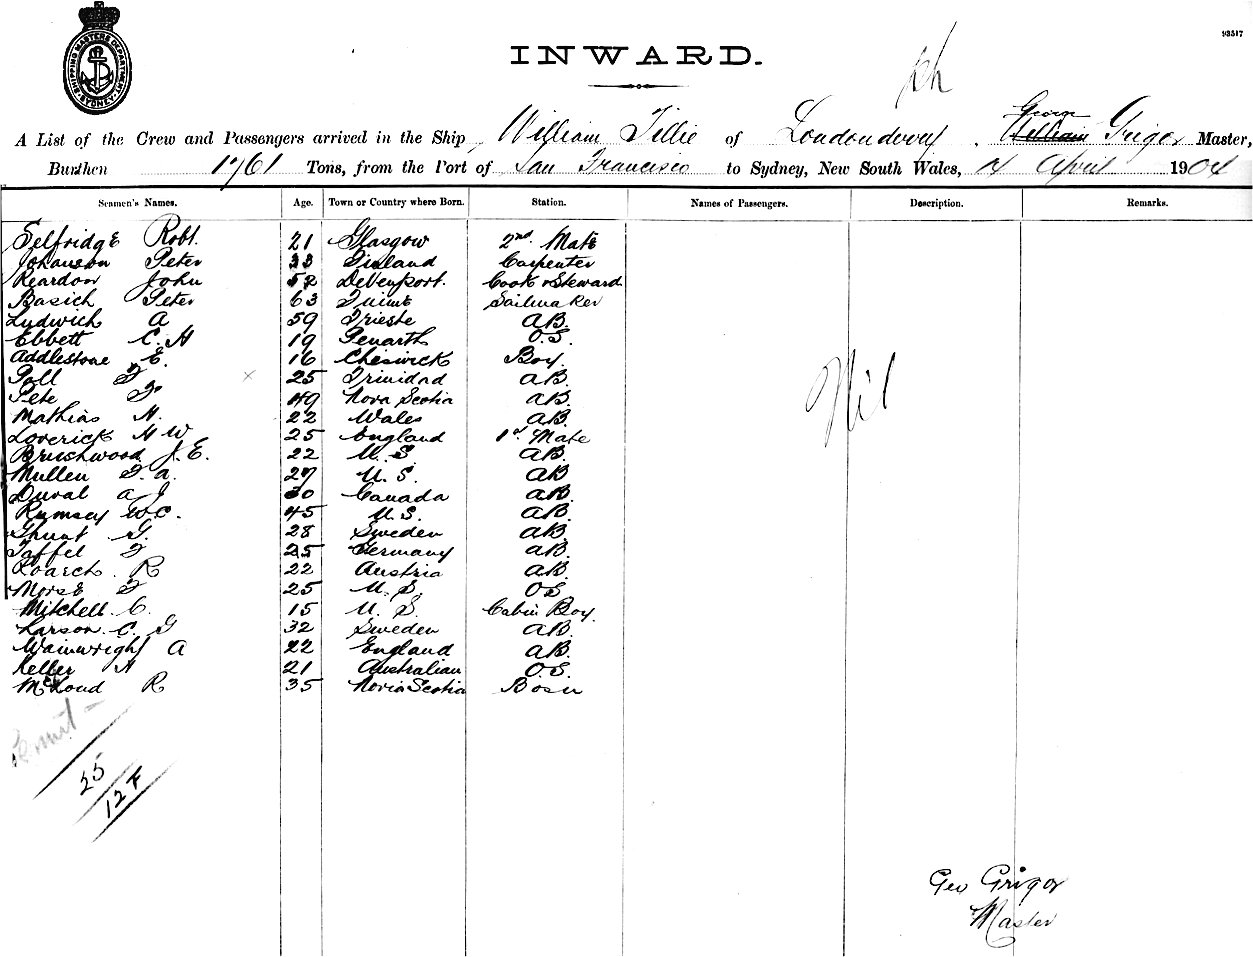 93517
SHIPPING MASTERS DEPARTMENT SYDNEY
INWARD.
A List of the Crew and Passengers arrived in the Ship William Tillie of Londonderry, George William Grigor Master,
Burthen 1761 Tons, from the Port of San Francisco to Sydney, New South Wales, April 1904
Seamen's Names. Age. Town or Country where Born. Station. Names of Passengers. Description. Remarks.
Selfridge Robt. 21 Glasgow 2nd. Mate
Johanson Peter 33 Finland Carpenter
Reardon John 52 Devenport. Cook & Steward
Basich Peter 63 Sailmaker
Ludwich A 59 Trieste A.B.
Ebbett C. H 19 Penarth O.S.
Addlestone E. 16 Cheswick Boy.
Poll F 25 Trinidad A.B.
Pete F 49 Nova Scotia A.B.
Mathias H. 22 Wales A.B.
Loverick H W 25 England 1st. Mate
Brushwood J. E. 22 U. S A.B.
Mullen F. A. 27 U. S. A.B
Duval A J 30 Canada A.B.
Rumsey W.C. 45 U. S. A.B.
G. 28 Sweden A.B.
Toffel F 25 Germany A.B.
Roarch R 22 Austria A.B.
Morse F 25 U. S. O.S
Mitchell C. 15 U. S. Cabin Boy.
Larson C. G 32 Sweden A.B.
Wainwright A 22 England A.B.
Keller H 21 Australian O.S.
McLoud R 35 Novia Scotia Bosn
Nil
25
127
Geo Grigor
Master